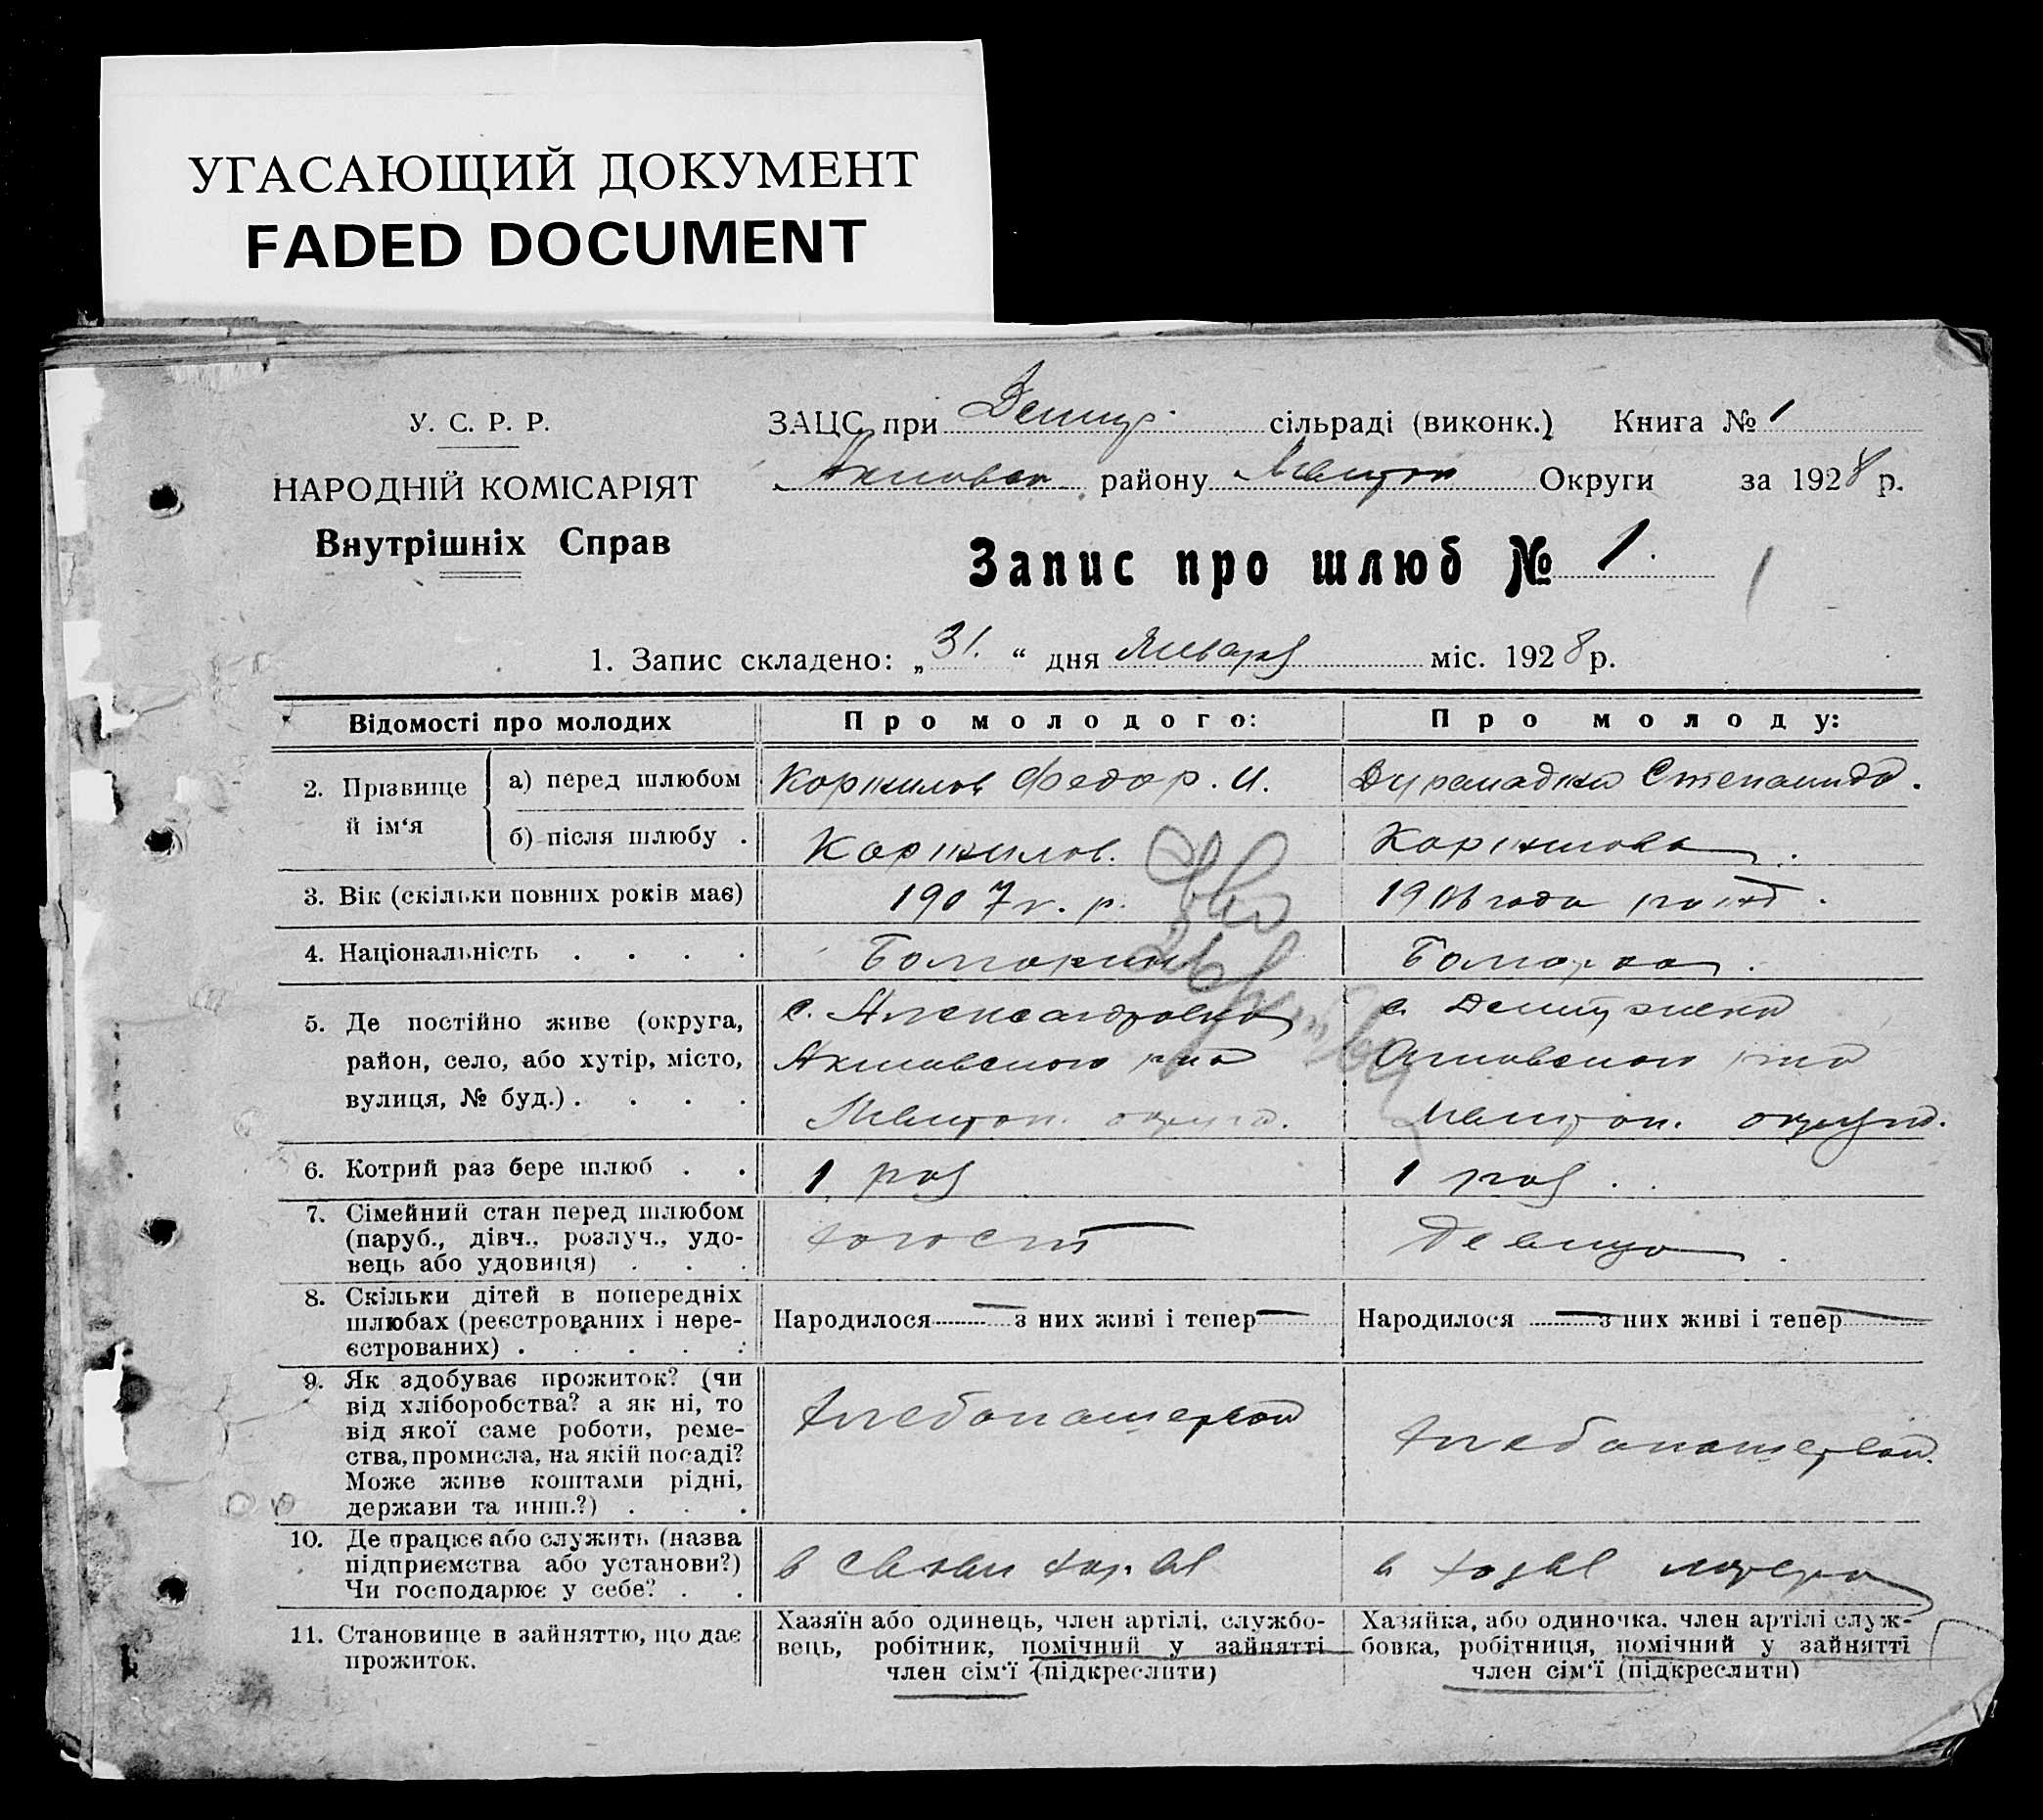 УГАСАЮЩИЙ ДОКУМЕНТ
FADED DOCUMENT
У. С. Р. Р.
НАРОДНІЙ КОМІСАРІЯТ
Внутрішніх Справ
ЗАЦС при сільраді (виконк.) Книга № 1
району Округи за 1928 р.
Запис про шлюб № 1.
1
1. Запис складено: „31.“ дня Января міс. 1928 р.
Відомості про молодих
Про молодого:
Про молоду:
2. Прізвище й ім‘я
а) перед шлюбом
Федор. И.
Степанида.
б) після шлюбу .
3. Вік (скільки повних років має)
1907 г. р.
1906 года рожд.
4. Національність . . . .
Болгарин
Болгарка.
5. Де постійно живе (округа,
район, село, або хутір, місто,
вулиця, № буд.) . . . .
с. Александровка
Акимовского р-на
Мелитоп. округа.
с.
Акимовского р-на
Мелитоп. округа.
6. Котрий раз бере шлюб . .
1 раз
1 раз.
7. Сімейний стан перед шлюбом
(паруб., дівч., розлуч., удо-
вець або удовиця) . . .
холост
Девица.
8. Скільки дітей в попередніх
шлюбах (реєстрованих і нере-
єстрованих) . . . . .
Народилося — з них живі і тепер —
Народилося — з них живі і тепер —
9. Як здобуває прожиток? (чи
від хліборобства? а як ні, то
від якої саме роботи, реме-
ства, промисла, на якій посаді?
Може живе коштами рідні,
держави та инш.?) . . .
хлебопашеством
хлебопашеством.
10. Де працює або служить (назва
підприємства або установи?)
Чи господарює у себе? . .
в своем
в
11. Становище в зайняттю, що дає
прожиток.
Хазяїн або одинець, член артілі, службо-
вець, робітник, помічний у зайнятті
член сім‘ї (підкреслити)
Хазяйка, або одиночка, член артілі служ-
бовка, робітниця, помічний у зайнятті
член сім‘ї (підкреслити)